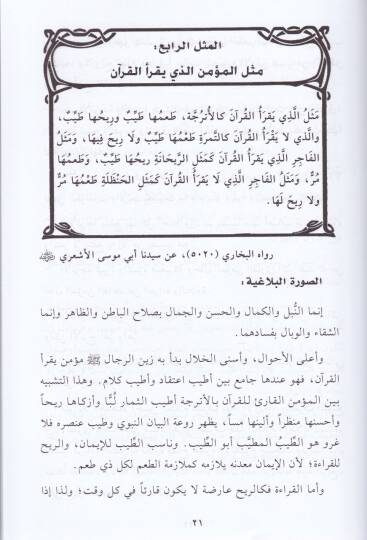 المثل الرابع:
مثل المؤمن الذي يقرأ القرآن
مَثَلُ الَّذِي يَقْرَأُ القُرآنَ كالأُترجَّة، طَعمُها طَيِّبٌ وريحُها طَيِّبٌ،
والَّذي لا يَقْرَأُ القُرآنَ كالتَّمرَةِ طَعْمُهَا طَيِّبٌ ولَا رِيحَ فِيهَا، وَمَثَلُ
الفَاجِرِ الَّذِي يَقرَأُ القُرآنَ كَمَثَلِ الرَّيحَانَةِ ريحُهَا طَيِّبٌ، وَطَعمُهَا
مُرٌّ، وَمَثَلُ الفَاجِرِ الَّذِي لَا يَقرَأُ القُرآنَ كَمَثَلِ الحَنْظَلَةِ طَعْمُهَا مُرٌّ
ولا رِيحَ لَهَا.
رواه البخاري (٥٠٢٠)، عن سيدنا أبي موسى الأشعري
الصورة البلاغية:
إنما النُّبل والكمال والحسن والجمال بصلاح الباطن والظاهر وإنما
الشقاء والوبال بفسادهما.
وأعلى الأحوال، وأسنى الخلال بدأ به زين الرجال ﷺ مؤمن يقرأ
القرآن، فهو عندها جامع بين أطيب اعتقاد وأطيب كلام. وهذا التشبيه
بين المؤمن القارئ للقرآن بالأترجة أطيب الثمار لُبًّا وأزكاها ريحاً
وأحسنها منظراً وألينها مساً، يظهر روعة البيان النبوي وطيب عنصره فلا
غرو هو الطَّيِّبُ المطيَّب أبو الطَّيِّب. وناسب الطَّيب للإيمان، والريح
للقراءة؛ لأن الإيمان معدنه يلازمه كملازمة الطعم لكل ذي طعم.
وأما القراءة فكالريح عارضة لا يكون قارئاً في كل وقت؛ ولذا إذا
٢١